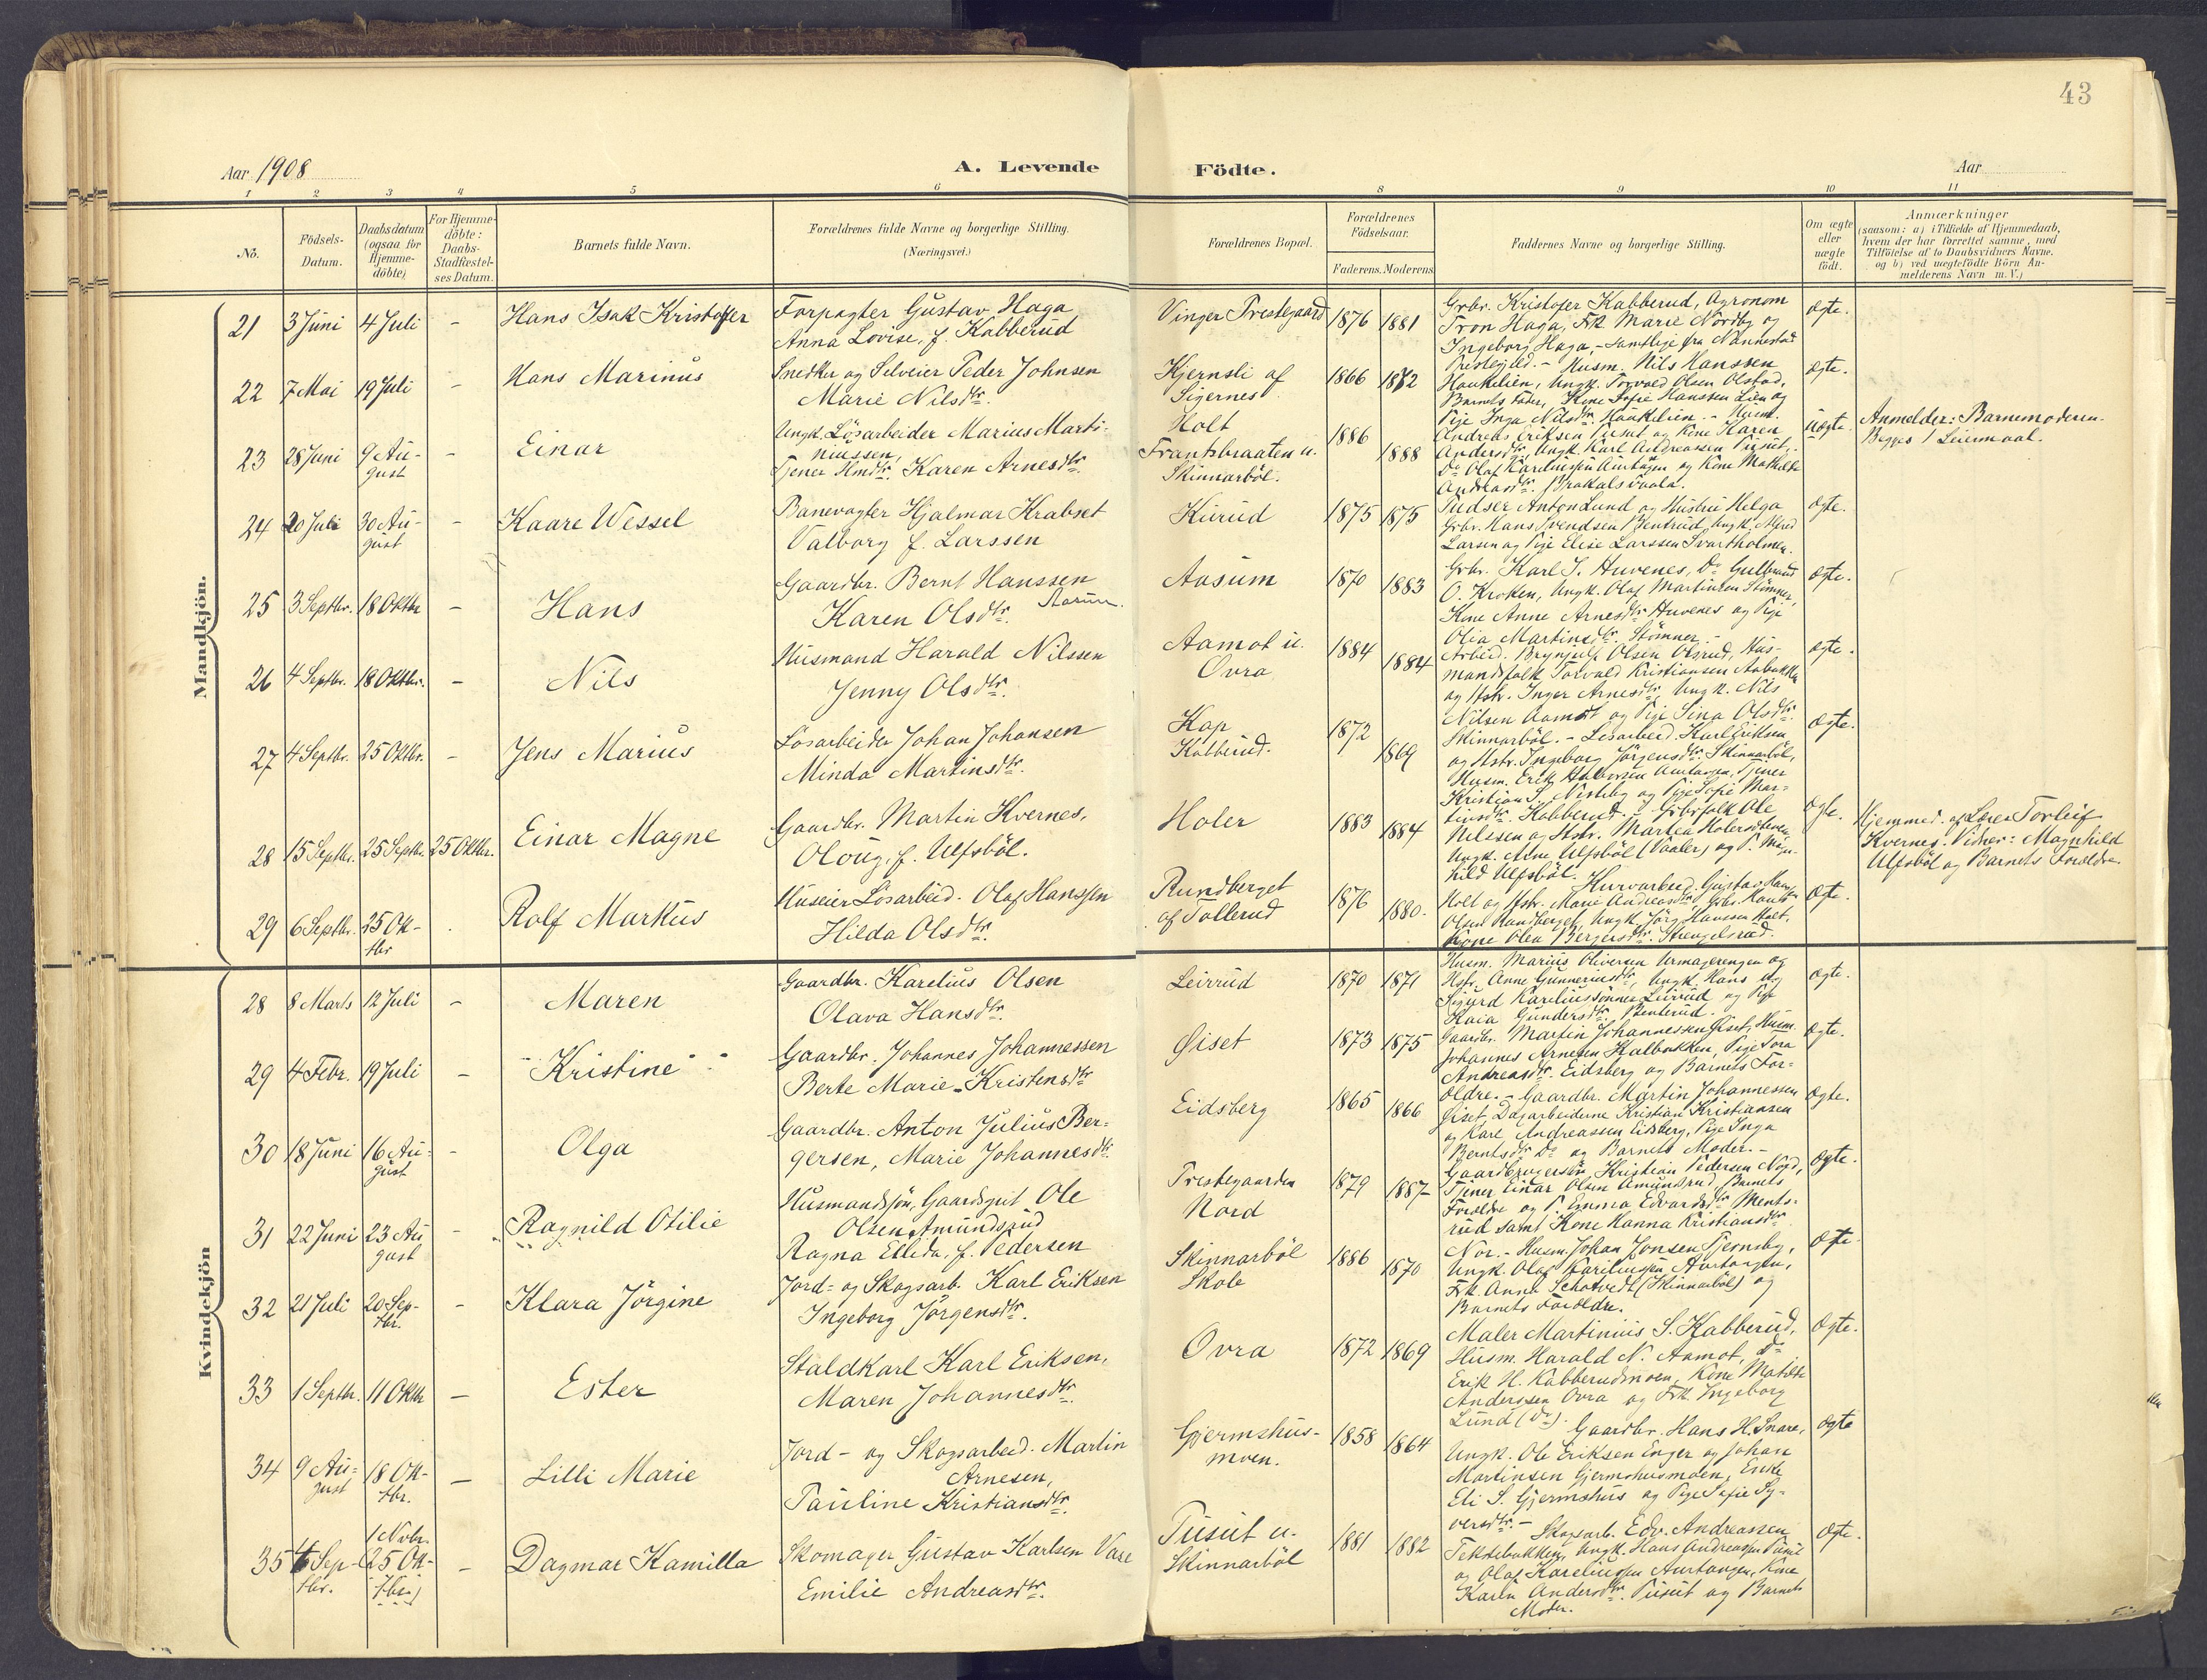 43
Aar 1908
A. Levende
Födte.
Aar
1 2 3 4 5 6 8 9 10 11
No.
Födsels-Datum.
Daabsdatum (ogsaa for Hjemme-döbte)
For Hjemme-döbte: Daabs-Stadfæstel-ses Datum.
Barnets fulde Navn.
Forældrenes fulde Navne og borgerlige Stilling. (Næringsvei.)
Forældrenes Bopæl.
Forældrenes Födselsaar.
Faderens. Moderens
Faddernes Navne og borgerlige Stilling.
Om ægte eller uægte födt.
Anmærkninger
(saasom: a) i Tilfælde af Hjemmedaab,
hvem der har forrettet samme, med
Tilföielse af to Daabsvidners Navne.
og b) ved uægtefödte Börn An-
melderens Navn m. V.)
Mandkjön.
21 3 Juni 4 Juli - Hans Isak Kristoffer
Forpagter Gustav Haga
Anna Lovise, f. Kabberud
Vinger Prestegaard 1876 1881
Grbr. Kristofer Kabberud, Agronom
Tron Haga, Frk. Marie Nordby og
Ingeborg Haga, - samtlige fra Nannestad
ægte.
22 7 Mai 19 Juli - Hans Marinus
Snedker og Selveier Peder Johnsen
Marie Nilsdtr.
Kjernsli af
Sigernes
1866 1872
Prestegjeld. - Husm. Nils Hanssen
Haukelien, Ungk. Torvald Olsen Olstad,
Barnets Fader, Kone Sofie Hanssen Lien og
Pige Inga Nilsdtr. Haukelien. - Husm.
ægte.
23 28 Juni 9 Au-
gust - Einar
Ungk. Lösarbeider Marius Marti-
niussen,
Tjener Hmdtr. Karen Arnesdtr.
Holt
Frantsbraaten u.
Skinnarböl.
1886 1888
Andreas Eriksen Pusut og Kone Karen
Andersdtr., Ungk. Karl Andreassen Pusut,
Do Olaf Kareliussen Aurtangen og Kone Mathilde
Andreasdtr.
uægte.
Anmelder: Barnemoderen.
Begges 1 Leiermaal.
24 20 Juli 30 Au-
gust - Kaare Wessel
Banevogter Hjalmar Krabset
Valborg f. Larssen
Kurud 1875 1875
Pudser Anton Lund og Hustru Helga
Grbr. Hans Svendsen Bentrud, Ungk. Alfred
Larsen og Pige Elise Larssen Svartholmen.
ægte.
25 3 Septbr. 18 Oktbr - Hans
Gaardbr. Bernt Hanssen
Aasum.
Karen Olsdtr.
Aasum 1870 1883
Grbr. Karl S. Huvenes, Do Gulbrand
O. Kroken, Ungk. Olaf Martinsen Stömner,
Kone Anne Arnesdtr. Huvenes og Pige
Olia Martinsdtr. Stömner. -
ægte.
26 4 Septbr. 18 Oktbr. - Nils
Husmand Harald Nilssen
Jenny Olsdtr.
Aamot u.
Ovra
1884 1884
Arbeid. Brynjulf Olsen Olsrud, Hus-
mandsfolk Torvald Kristiansen Aabakken
og Hstr. Inger Arnesdtr., Ungk. Nils
Nilsen Aamot og Pige Sina Olsdtr.
ægte.
27 4 Septbr. 25 Oktbr. - Jens Marius
Lösarbeider Johan Johansen
Minda Martinsdtr.
Kap
Kabberud.
1872 1869
Skinnarböl. - Lösarbeid. Karl Eriksen
og Hstr. Ingeborg Jörgensdtr. Skinnarböl,
Husm. Erik Halvorsen Aurtangen, Tjener
Kristian S. Nesteby og Pige Sofie Mar-
tinsdtr. Kabberud. -
ægte.
28 15 Septbr. 25 Septbr. 25 Oktbr. Einar Magne
Gaardbr. Martin Kvernes,
Oloug, f. Ulfsböl.
Holer 1883 1884
Grbrfolk Ole
Nilssen og Hstr. Martea
Ungk. Arne Ulfsböl (Vaaler) og P. Magn-
hild Ulfsböl.
ægte.
Hjemmed. af Lærer Torleif
Kvernes. Vidner: Magnhild
Ulfsböl og Barnets Forældre.
29 6 Septbr. 25 Ok-
tbr Rolf Markus
Huseier Lösarbeid. Olaf Hanssen
Hilda Olsdtr.
Rundberget
af Tollerud
1876 1880.
Kurvarbeid. Gustav Hansen
Holt og Hstr. Marie Andreasdtr., Grbr. Hans
Olsen Rundberget, Ungk. Jörg. Hanssen Holt,
Kone Olea Bergersdtr. Stangelsrud.
ægte.
Kvindekjön
28 8 Marts 12 Juli - Maren
Gaardbr. Karelius Olsen
Olava Hansdtr.
Leirrud 1870 1871
Husm. Marius Oliversen Urmagerengen og
Hstr. Anne Gunneriusdtr., Ungk. Hans og
Sigurd Kareliussönner Leirrud og Pige
Kaia Gundersdtr. Benterud.
ægte.
29 4 Febr. 19 Juli - Kristine
Gaardbr. Johannes Johannessen
Berte Marie Kristensdtr
Øiset 1873 1875
Gaardbr. Martin Johannessen Øiset, Husm.
Johannes Arnesen Kalbakken, Pige Tora
Andreasdtr. Eidsberg og Barnets For-
ældre. -
ægte.
30 18 Juni 16 Au-
gust - Olga
Gaardbr. Anton Julius Ber-
gersen, Marie Johannesdtr.
Eidsberg 1865 1866
Gaardbr. Martin Johannessen
Øiset, Dagarbeiderne Kristian Kristiansen
og Karl Andreassen Eidsberg, Pige Inga
Berntsdtr. Do og Barnets Moder. -
ægte.
31 22 Juni 23 Au
gust - Ragnild Otilie
Husmandssön, Gaardsgut Ole
Olsen Amundsrud
Ragna Ellida, f. Pedersen
Prestegaarden
Nord
1879 1887
Gaardbrugersön Kristian Pedersen Nord,
Tjener Einar Olsen Amundsrud, Barnets
Forældre og P. Emma Edvardsdtr. Ments-
rud samt Kone Hanna Kristiansdtr.
Nor. -
ægte.
32 21 Juli 20 Sep-
tbr. - Klara Jörgine
Jord- og Skogsarb. Karl Eriksen
Ingeborg Jörgensdtr.
Skinnarböl
Skole
1886 1870
Husm. Johan Jonsen Tjernsby,
Ungk. Olaf Kareliussen Aurtangen,
Frk. Anna Schøtvedt (Skinnarböl) og
Barnets Forældre.
ægte.
33 1 Septbr. 11 Oktbr - Ester
Staldkarl Karl Eriksen,
Maren Johannesdtr.
Ovra 1872 1869
Maler Martinius S. Kabberud,
Husm. Harald N. Aamot, Do
Erik H. Kabberudmoen, Kone Matilde
Anderssen Ovra og Frk. Ingeborg
Lund (Do).
ægte.
34 9 Au-
gust 18 Ok-
tbr. - Lilli Marie
Jord- og Skogsarbeid. Martin
Arnesen,
Pauline Kristiansdtr.
Gjermshus-
moen.
1858 1864
Gaardbr. Hans H. Snare,
Ungk. Ole Eriksen Enger og Johan
Martinsen Gjermshusmoen, Enke
Eli S. Gjermshus og Pige Sofie Sy-
versdtr. -
ægte
35 6 Sep-
tbr. 1 Nvbr.
(25 Ok-
tbr.) - Dagmar Kamilla
Skomager Gustav Karlsen Vase
Emilie Andreasdtr.
Pusut u.
Skinnarböl
1881 1882
Skogsarb. Edv. Andreassen
Teksebakken, Ungk. Hans Andreassen Pusut
og Olaf Kareliussen Aurtangen, Kone
Karen Andersdtr. Pusut og Barnets
Moder.
ægte.